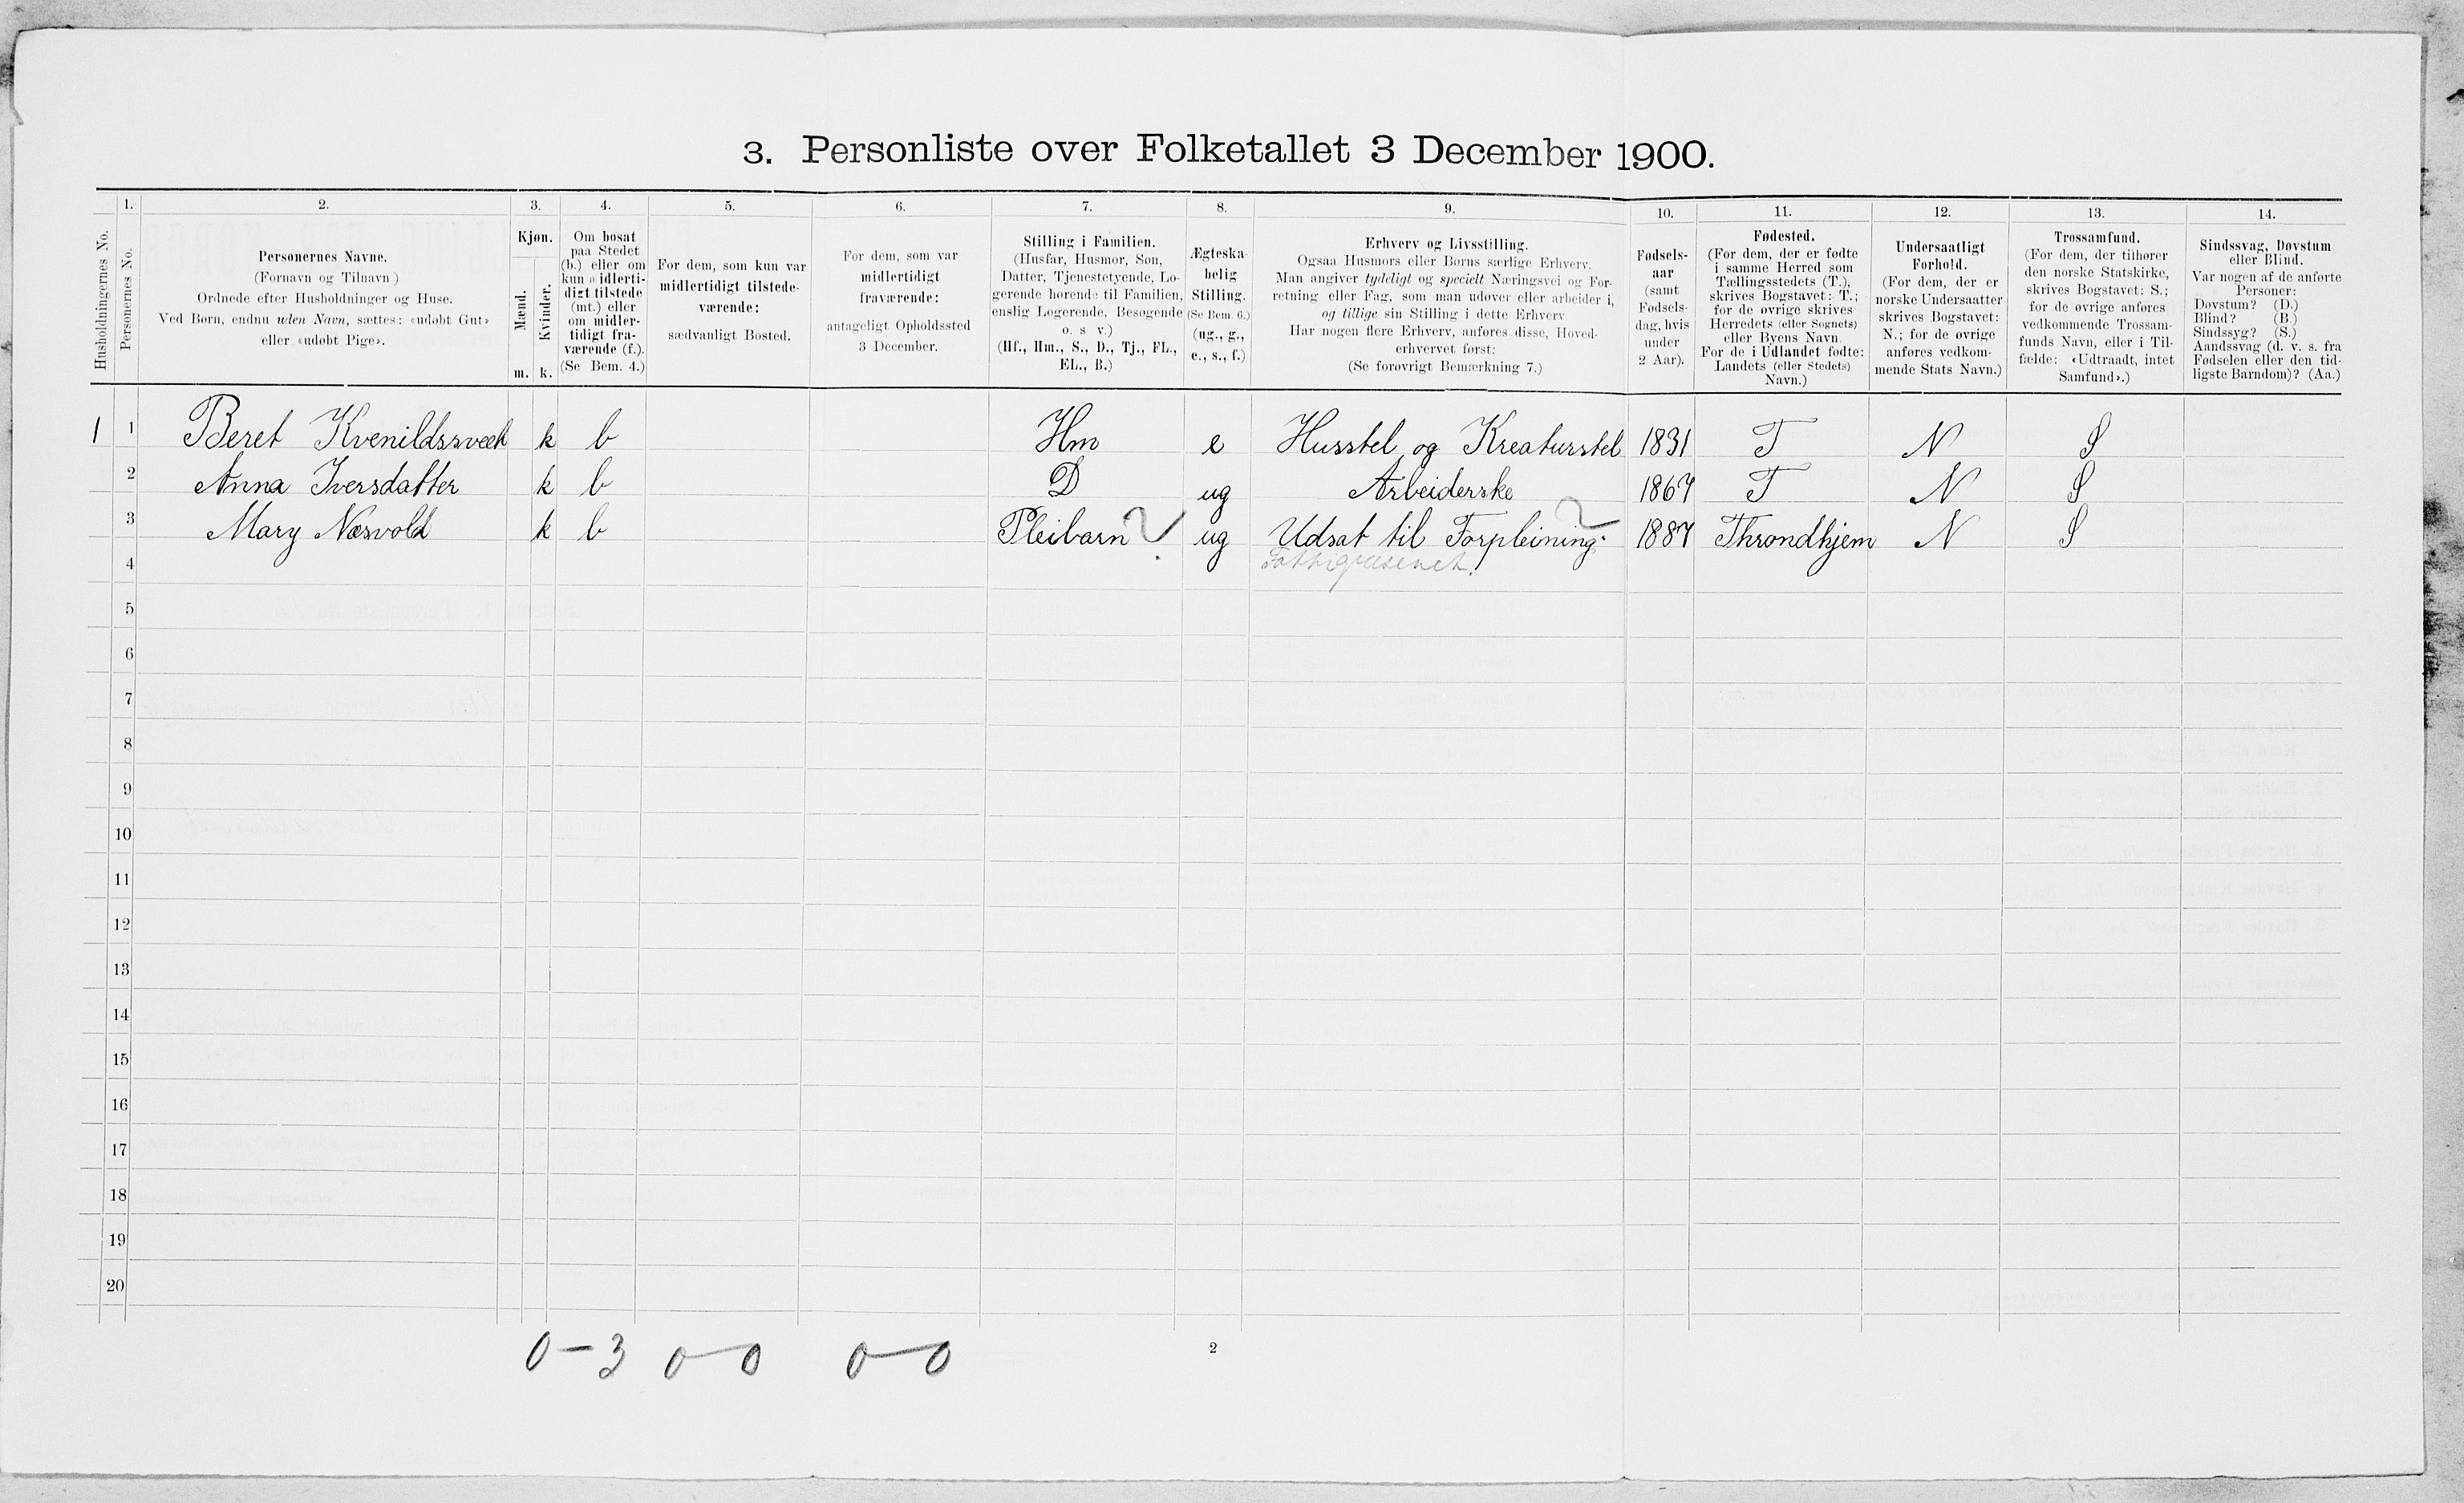 3. Personliste over Folketallet 3 December 1900.
Husholdningernes No.
1.
Personernes No.
2.
Personernes Navne.
(Fornavn og Tilnavn)
Ordnede efter Husholdninger og Huse.
Ved Børn, endnu uden Navn, sættes: «udøbt Gut»
eller «udøbt Pige».
3.
Kjøn.
Mænd.
Kvinder.
m. k.
4.
Om bosat
paa Stedet
(b.) eller om
kun midlerti-
digt tilstede
(mt.) eller
om midler-
tidigt fra-
værende (f.).
(Se Bem. 4.)
5.
For dem, som kun var
midlertidigt tilstede-
værende:
sædvanligt Bosted.
6.
For dem, som var
midlertidigt
fraværende:
antageligt Opholdssted
3 December.
7.
Stilling i Familien.
(Husfar, Husmor, Søn,
Datter, Tjenestetyende, Lo-
gerende hørende til Familien,
enslig Logerende, Besøgende
o. s. v.)
(Hf., Hm., S., D., Tj., FL.,
EL., B.)
8.
Ægteska-
belig
Stilling.
(Se Bem. 6.)
(ug., g.,
e., s., f.)
9.
Erhverv og Livsstilling.
Ogsaa Husmors eller Børns særlige Erhverv.
Man angiver tydeligt og specielt Næringsvei og For-
retning eller Fag, som man udøver eller arbeider i,
og tillige sin Stilling i dette Erhverv
Har nogen flere Erhverv, anføres disse, Hoved-
erhvervet først:
(Se forøvrigt Bemærkning 7.)
10.
Fødsels-
aar
(samt
Fødsels-
dag, hvis
under
2 Aar).
11.
Fødested.
(For dem, der er fødte
i samme Herred som
Tællingsstedets (T.),
skrives Bogstavet: T.;
for de øvrige skrives
Herredets (eller Sognets)
eller Byens Navn.
For de i Udlandet fødte:
Landets (eller Stedets)
Navn.)
12.
Undersaatligt
Forhold.
(For dem, der er
norske Undersaatter
skrives Bogstavet:
N.; for de øvrige
anføres vedkom-
mende Stats Navn.)
13.
Trossamfund.
(For dem, der tilhører
den norske Statskirke,
skrives Bogstavet: S.;
for de øvrige anføres
vedkommende Trossam-
funds Navn, eller i Til-
fælde: «Udtraadt, intet
Samfund».)
14.
Sindssvag, Døvstum
eller Blind.
Var nogen af de anførte
Personer:
Døvstum? (D.)
Blind? (B.)
Sindssyg? (S.)
Aandssvag (d. v. s. fra
Fødselen eller den tid-
ligste Barndom)? (Aa.)
1 1 Beret k b Hm e Husstel og Kreaturstel 1831 T N S
2 Anna Iversdatter k b D ug Arbeiderske 1867 T N S
3 Mary Næsvold k b Pleibarn ? ug Udsat til Forpleining. 1887 Throndhjem N S
4
5
6
7
8
9
10
11
12
13
14
15
16
17
18
19
20
0-3 0-0 0-0
2